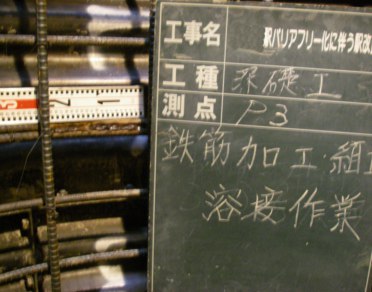 工事名 駅バリアフリー化に伴う駅改
工種 深礎工
測点 P3
鉄筋加工・組
溶接作業
7 1